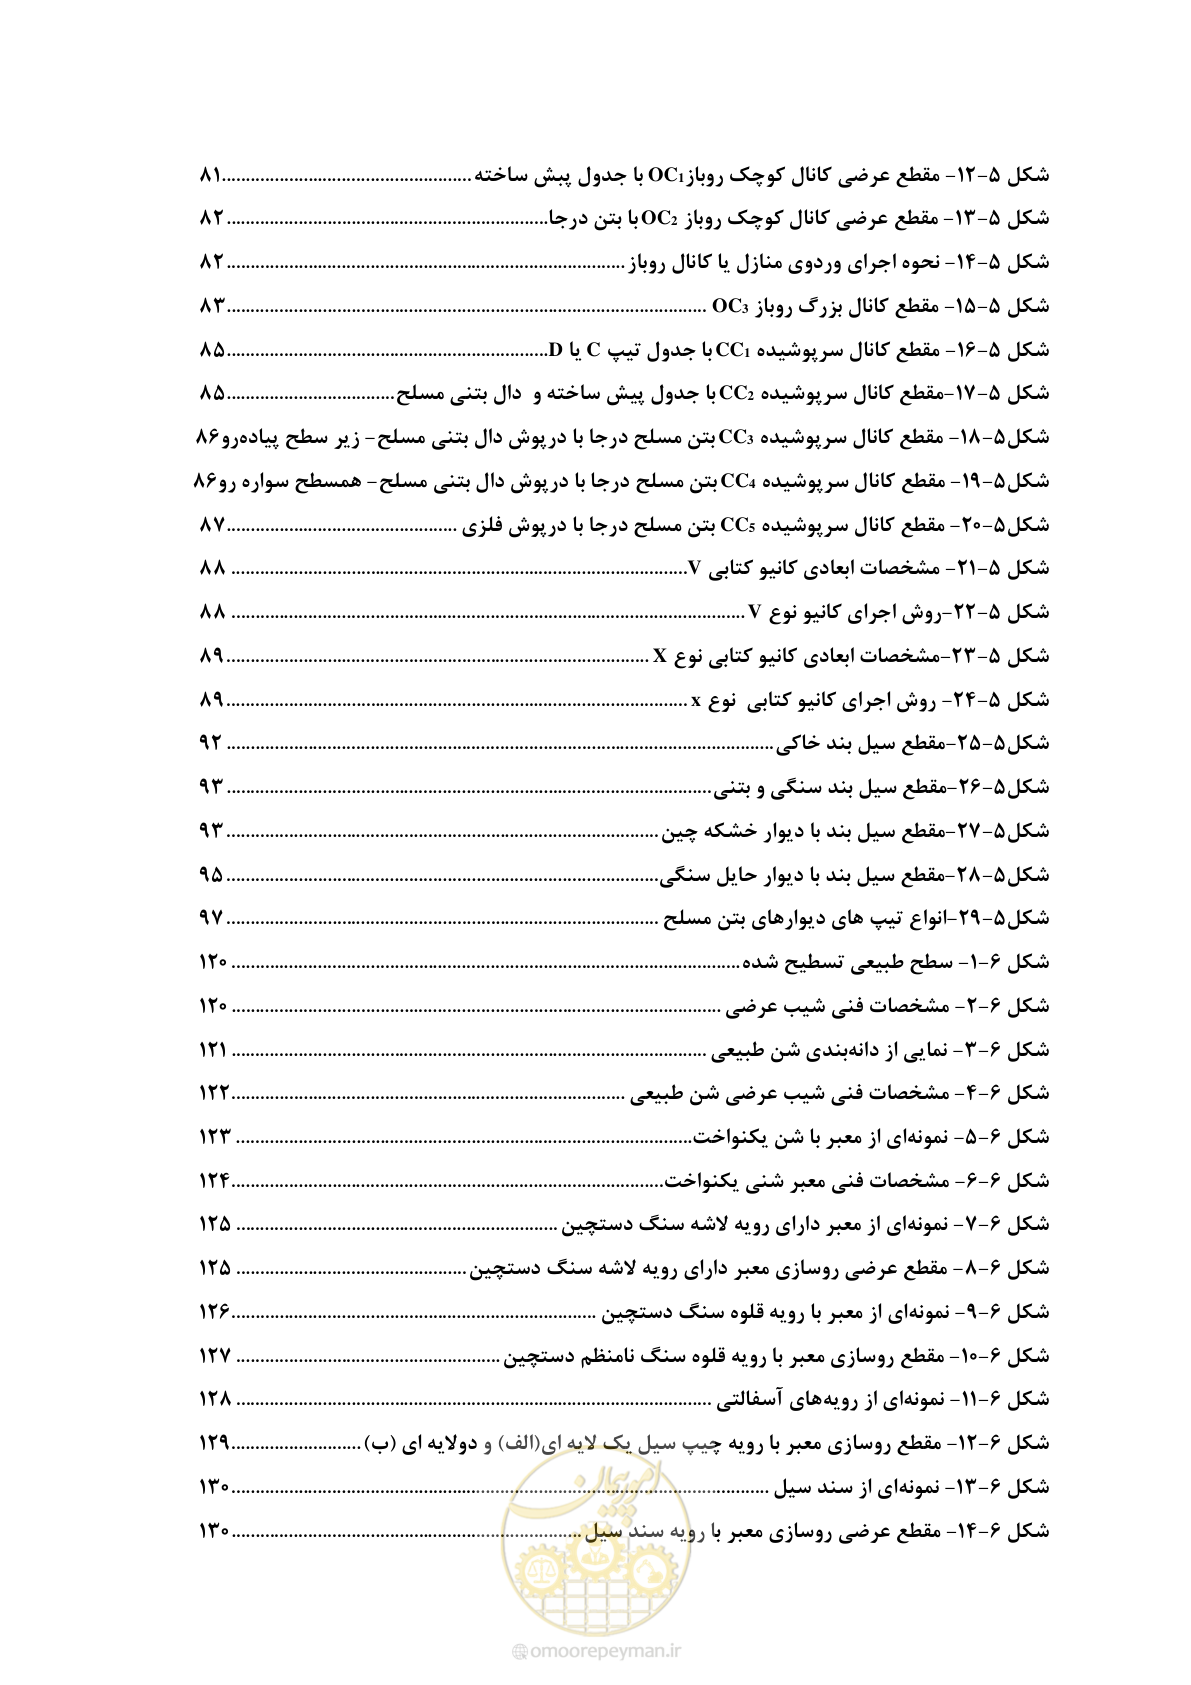 شکل ۵-۱۲- مقطع عرضی کانال کوچک روباز OC1 با جدول پیش ساخته ........ ۸۱
شکل ۵-۱۳- مقطع عرضی کانال کوچک روباز OC2 با بتن درجا ........ ۸۲
شکل ۵-۱۴- نحوه اجرای وردوی منازل یا کانال روباز ........ ۸۲
شکل ۵-۱۵- مقطع کانال بزرگ روباز OC3 ........ ۸۳
شکل ۵-۱۶- مقطع کانال سرپوشیده CC1 با جدول تیپ C یا D ........ ۸۵
شکل ۵-۱۷-مقطع کانال سرپوشیده CC2 با جدول پیش ساخته و دال بتنی مسلح ........ ۸۵
شکل۵-۱۸- مقطع کانال سرپوشیده CC3 بتن مسلح درجا با درپوش دال بتنی مسلح- زیر سطح پیاده‌رو۸۶
شکل۵-۱۹- مقطع کانال سرپوشیده CC4 بتن مسلح درجا با درپوش دال بتنی مسلح- همسطح سواره رو۸۶
شکل۵-۲۰- مقطع کانال سرپوشیده CC5 بتن مسلح درجا با درپوش فلزی ........ ۸۷
شکل ۵-۲۱- مشخصات ابعادی کانیو کتابی V ........ ۸۸
شکل ۵-۲۲-روش اجرای کانیو نوع V ........ ۸۸
شکل ۵-۲۳-مشخصات ابعادی کانیو کتابی نوع X ........ ۸۹
شکل ۵-۲۴- روش اجرای کانیو کتابی نوع x ........ ۸۹
شکل۵-۲۵-مقطع سیل بند خاکی ........ ۹۲
شکل۵-۲۶-مقطع سیل بند سنگی و بتنی ........ ۹۳
شکل۵-۲۷-مقطع سیل بند با دیوار خشکه چین ........ ۹۳
شکل۵-۲۸-مقطع سیل بند با دیوار حایل سنگی ........ ۹۵
شکل۵-۲۹-انواع تیپ های دیوارهای بتن مسلح ........ ۹۷
شکل ۶-۱- سطح طبیعی تسطیح شده ........ ۱۲۰
شکل ۶-۲- مشخصات فنی شیب عرضی ........ ۱۲۰
شکل ۶-۳- نمایی از دانه‌بندی شن طبیعی ........ ۱۲۱
شکل ۶-۴- مشخصات فنی شیب عرضی شن طبیعی ........ ۱۲۲
شکل ۶-۵- نمونه‌ای از معبر با شن یکنواخت ........ ۱۲۳
شکل ۶-۶- مشخصات فنی معبر شنی یکنواخت ........ ۱۲۴
شکل ۶-۷- نمونه‌ای از معبر دارای رویه لاشه سنگ دستچین ........ ۱۲۵
شکل ۶-۸- مقطع عرضی روسازی معبر دارای رویه لاشه سنگ دستچین ........ ۱۲۵
شکل ۶-۹- نمونه‌ای از معبر با رویه قلوه سنگ دستچین ........ ۱۲۶
شکل ۶-۱۰- مقطع روسازی معبر با رویه قلوه سنگ نامنظم دستچین ........ ۱۲۷
شکل ۶-۱۱- نمونه‌ای از رویه‌های آسفالتی ........ ۱۲۸
شکل ۶-۱۲- مقطع روسازی معبر با رویه چیپ سیل یک لایه ای(الف) و دولایه ای (ب) ........ ۱۲۹
شکل ۶-۱۳- نمونه‌ای از سند سیل ........ ۱۳۰
شکل ۶-۱۴- مقطع عرضی روسازی معبر با رویه سند سیل ........ ۱۳۰
امور پیمان
omoorepeyman.ir